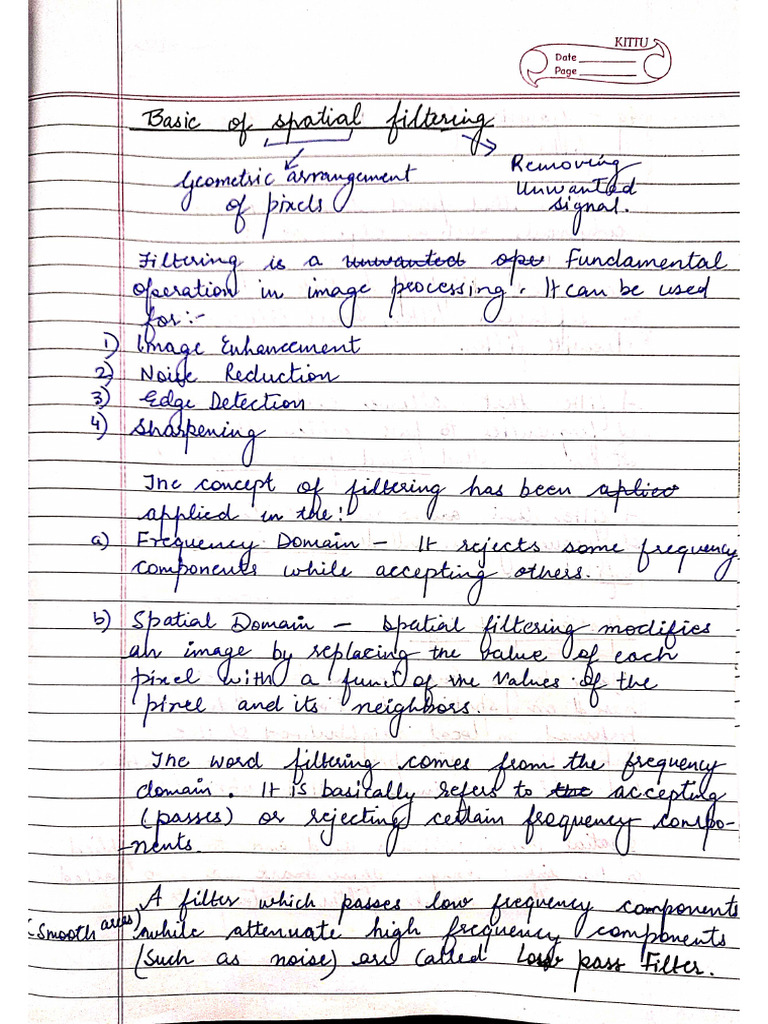 KITTU
Date
Page
Basic of spatial filtering
Geometric arrangement
of pixels
Removing
Unwanted
signal.
Filtering is a unwanted ope Fundamental
operation in image processing. It can be used
for:-
1) Image Enhancement
2) Noise Reduction
3) Edge Detection
4) Sharpening
The concept of filtering has been aplied
applied in the:
a) Frequency Domain - It rejects some frequency
components while accepting others.
b) Spatial Domain - spatial filtering modifies
an image by replacing the value of each
pixel with a funcⁿ of the values of the
pixel and its neighbors.
The word filtering comes from the frequency
domain. It is basically refers to the accepting
(passes) or rejecting certain frequency compo-
-nents.
A filter which passes low frequency components
(smooth areas) while attenuate high frequency components
(such as noise) are called Low pass Filter.